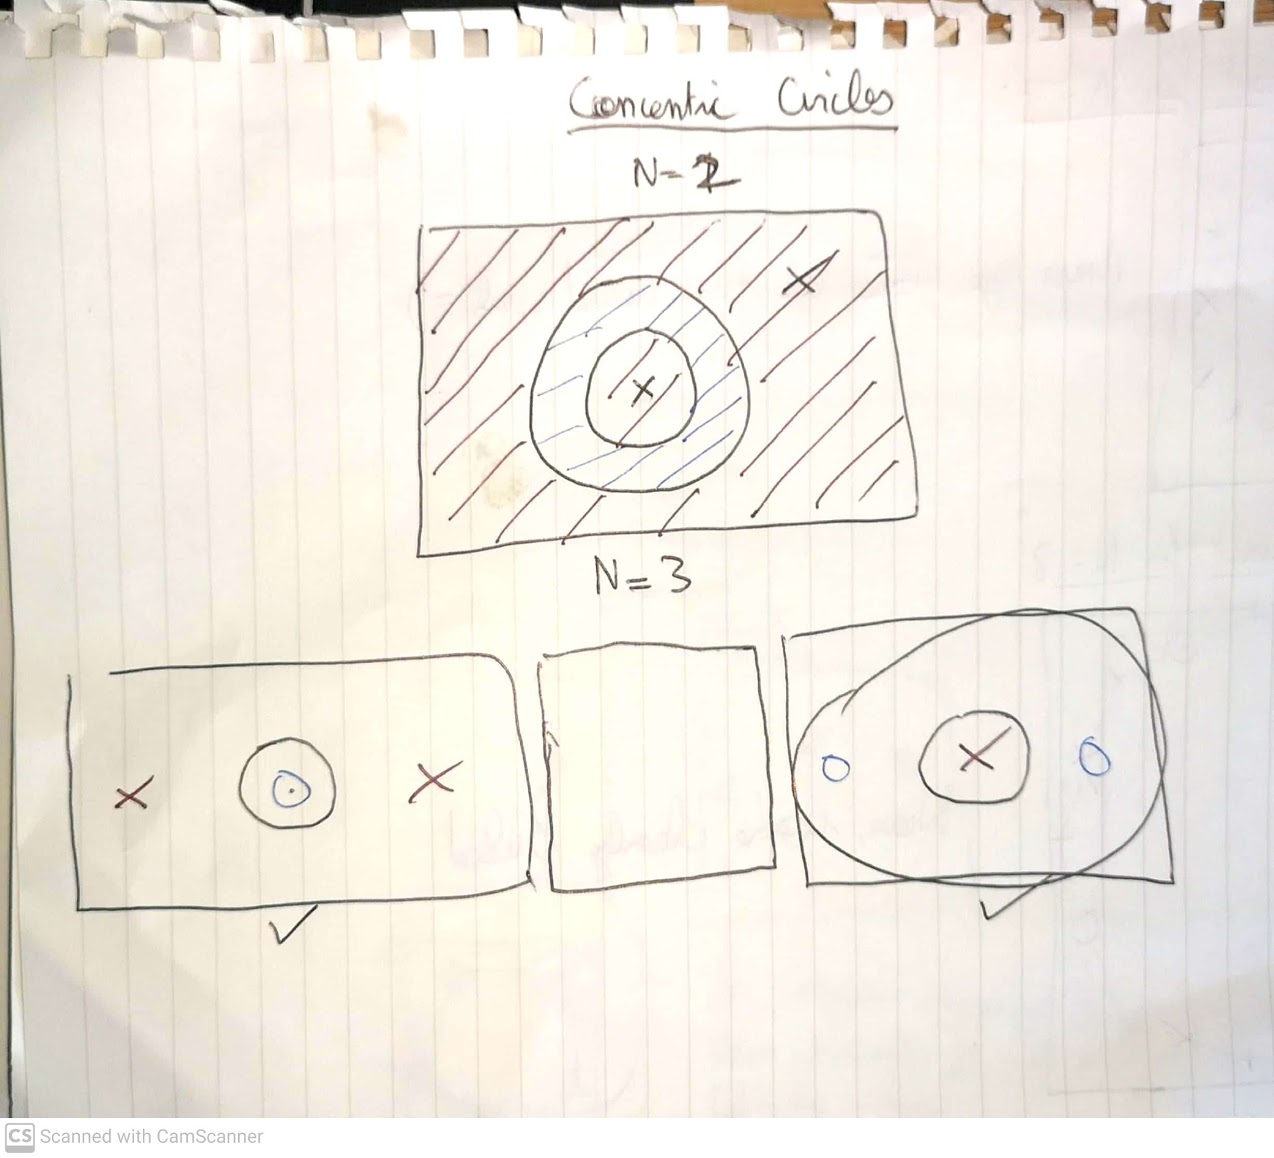 Concentric Circles
N=2
X
X
N=3
X O X
O X O
CS Scanned with CamScanner